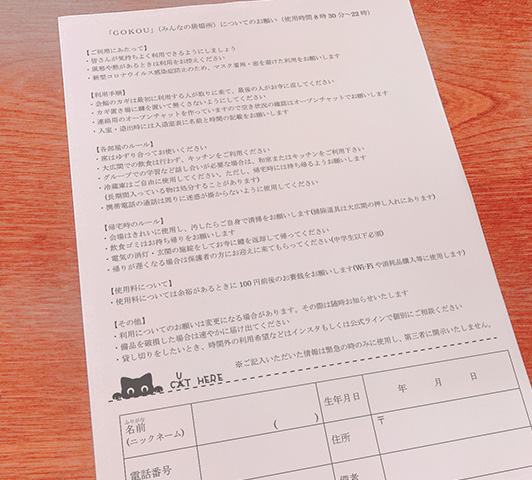 「GOKOU」（みんなの居場所）についてのお願い（使用時間８時 30 分〜22 時）
【ご利用にあたって】
・皆さんが気持ちよく利用できるようにしましょう
・風邪や熱があるときは利用をお控えください
・新型コロナウイルス感染症防止のため、マスク着用・密を避けた利用をお願いします
【利用手順】
・会館のカギは最初に利用する人が取りに来て、最後の人がお寺に返してください
・カギ置き場に鍵を置いて無くさないようにしてください
・連絡用のオープンチャットを作っていますので空き状況の確認はオープンチャットでお願いします
・入室・退出時には入退室表に名前と時間の記載をお願いします
【各部屋のルール】
・席はゆずり合ってお使いください
・大広間での飲食は行わず、キッチンをご利用ください
・グループでの学習など話し合いが必要な場合は、和室またはキッチンをご利用下さい
・冷蔵庫はご自由に使用してください。ただし、帰宅時には持ち帰るようお願いします
(長期間入っている物は処分することがあります)
・携帯電話の通話は周りに迷惑が掛からないように使用してください
【帰宅時のルール】
・会場はきれいに使用し、汚したらご自身で清掃をお願いします(掃除道具は大広間の押し入れにあります)
・飲食ゴミはお持ち帰りをお願いします
・電気の消灯・玄関の施錠をしてお寺に鍵を返却して帰ってください
・帰りが遅くなる場合は保護者の方にお迎えに来てもらってください(中学生以下必須)
【使用料について】
・使用料については余裕があるときに 100 円前後のお賽銭をお願いします(Wi-Fi や消耗品購入等に使用します)
【その他】
・利用についてのお願いは変更になる場合があります。その際は随時お知らせいたします
・備品を破損した場合は速やかに届け出てください
・貸し切りをしたいとき、時間外の利用希望などはインスタもしくは公式ラインで個別にご相談ください
※ご記入いただいた情報は緊急の時のみに使用し、第三者に開示いたしません。
U
CAT HERE
ふりがな
名前
(ニックネーム)
( )
生年月日
年 月 日
住所
〒
電話番号
備考